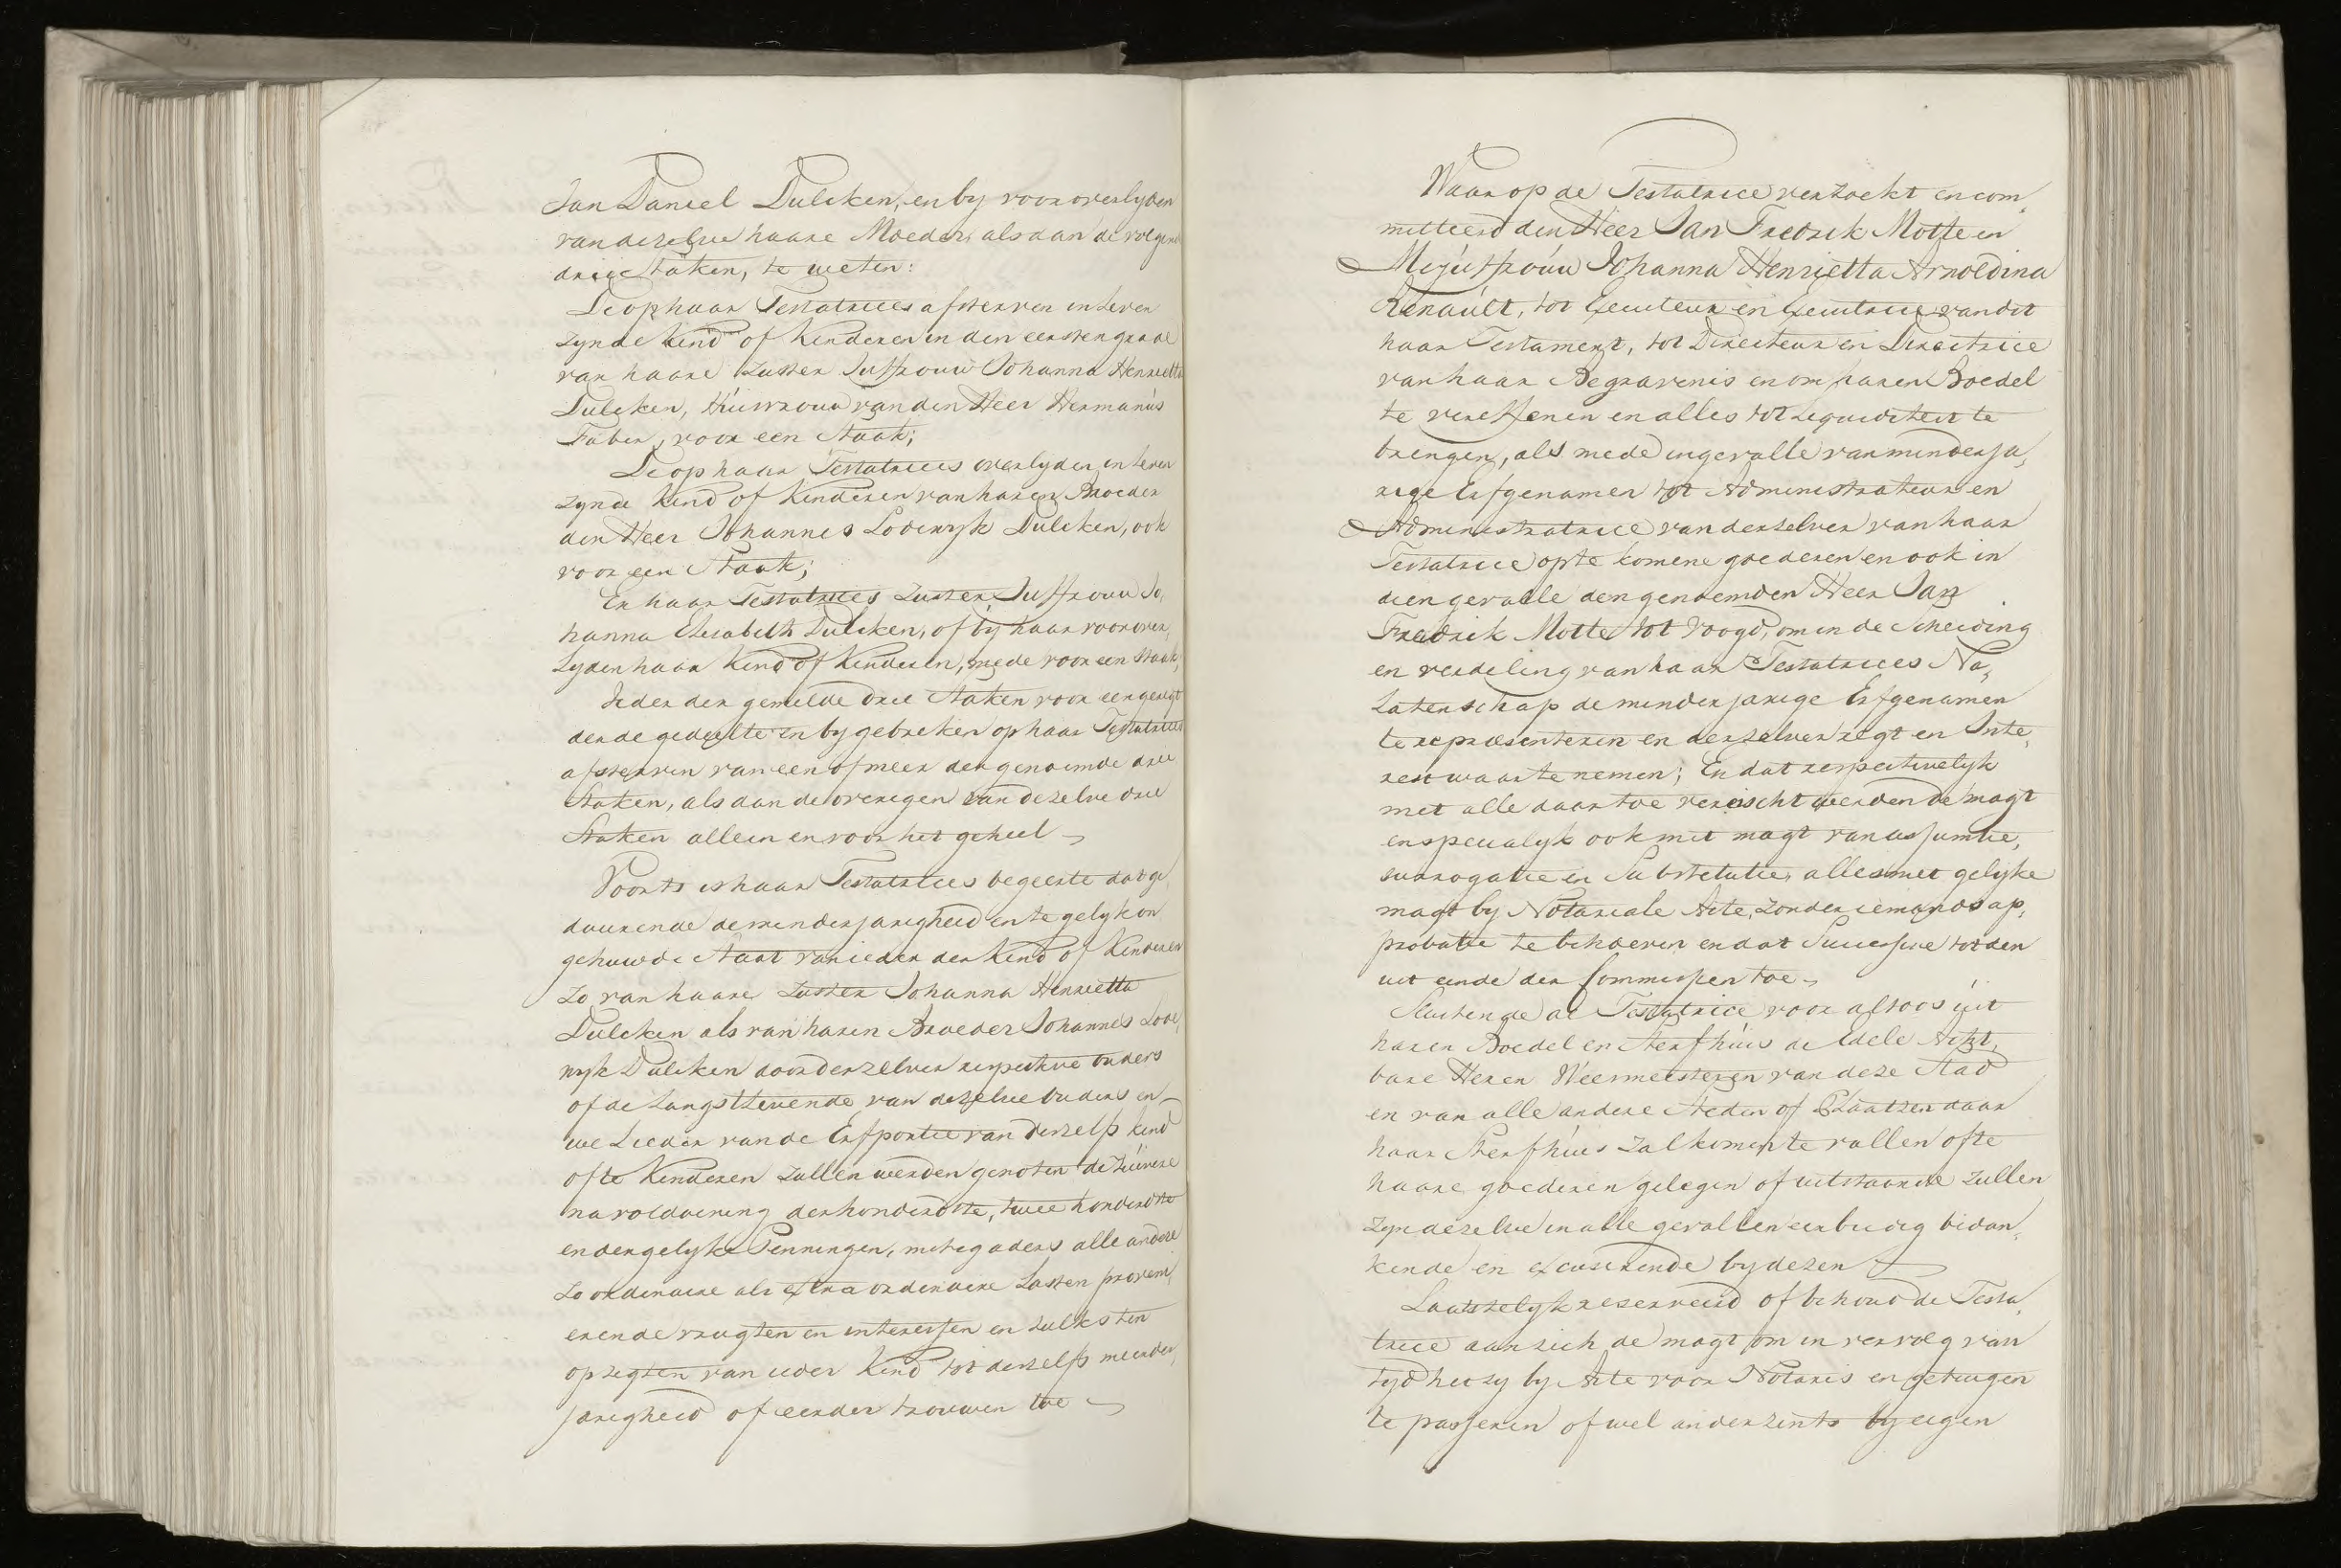 Jan Daniel Dulcken, en by voor overlyden
van dezelve haare Moeder, als dan de volgende
drie Staken, te weten:
De op haar Testatrices afsterven in leven
zynde kind of kinderen in den eersten graad
van haare Zuster Juffrouw Johanna Henrietta
Dulcken, Huisvrouw van den Heer Hermanús
Faber, voor een Staak;
De op haar Testatrices overlyden in leven
zynde kind of kinderen van haren Broeder
den Heer Johannes Lodewyk Dulcken, ook
voor een Staak;
En haar Testatrices Zuster Juffrouw Jo,
hanna Elisabeth Dulcken, of by haar voorover,
lyden haar kind of kinderen, mede voor een Staak;
Ieder der gemelde drie Staken voor een geregt
derde gedeelte en by gebreken op haar Testatrices
afsterven van een of meer der genoemde drie
Staken, als dan de overigen van dezelve drie
Staken alleen en voor het geheel
Voorts is haar Testatrices begeerte dat ge,
duurende de minderjarigheid en te gelyk on
gehuwde Staat van ieder der kind of kinderen
zo van haare Zuster Johanna Henrietta
Dulcken als van haren Broeder Johannes Lode,
wyk Dulcken door derzelver respective ouders
of de Langstlevende van dezelve ouders en
we Lieder van de Erfportie van derzelfs kind
ofte kinderen zullen werden genoten de zuivere
na voldoening der honderdste, twee honderdste
en dergelyke Penningen, mitsgaders alle andere
zo ordinaire als extra ordinaire Lasten proveni,
erende vrugten en interessen en zulks ten
opzigten van ieder kind tot derzelfs meerder,
jarigheid of eerder trouwen toe
Waar op de Testatrice verzoekt en com,
mitteerd den Heer Jan Fredrik Motte en
Mejúffroúw Johanna Henrietta Arnoldina
Renaúlt, tot Executeur en Executrice van dit
haar Testament, tot Directeur en Directrice
van haar Begravenis en om haren Boedel
te vereffenen en alles tot liquiditeit te
brengen, als mede ingevalle van minderja,
rige Erfgenamen tot Administrateur en
Administratrice van derzelver van haar
Testatrice op te komene goederen en ook in
dien gevalle den genoemden Heer Jan
Fredrik Motte tot Voogd, om in de Scheiding
en verdeling van haar Testatrices Na,
latenschap de minderjarige Erfgenamen
te repræsenteren en derzelver regt en Inte,
rest waar te nemen; En dat respectivelyk
met alle daar toe vereischt werdende magt
en speciaalyk ook met magt van assumtie,
surrogatie en Substitutie, alles met gelyke
magt by Notariale Acte, zonder iemands ap,
probatie te behoeven en dat Successive tot den
uit einde der Commissien toe
Sluitende de Testatrice voor altoos úit
haren Boedel en Sterfhúis de Edele Acht,
bare Heren Weesmeesteren van deze Stad
en van alle andere Steden of Plaatzen daar
haar Sterfhúis zal komen te vallen ofte
haare goederen gelegen of uitstaande zullen
zyn dezelve in alle gevallen eerbiedig bedan,
kende en excuserende by dezen
Laatstelyk reserveerd of behoud de Testa,
trice aan zich de magt om in vervolg van
tyd het zy by Acte voor Notaris en getuigen
te passeren of wel anderzints by eigen